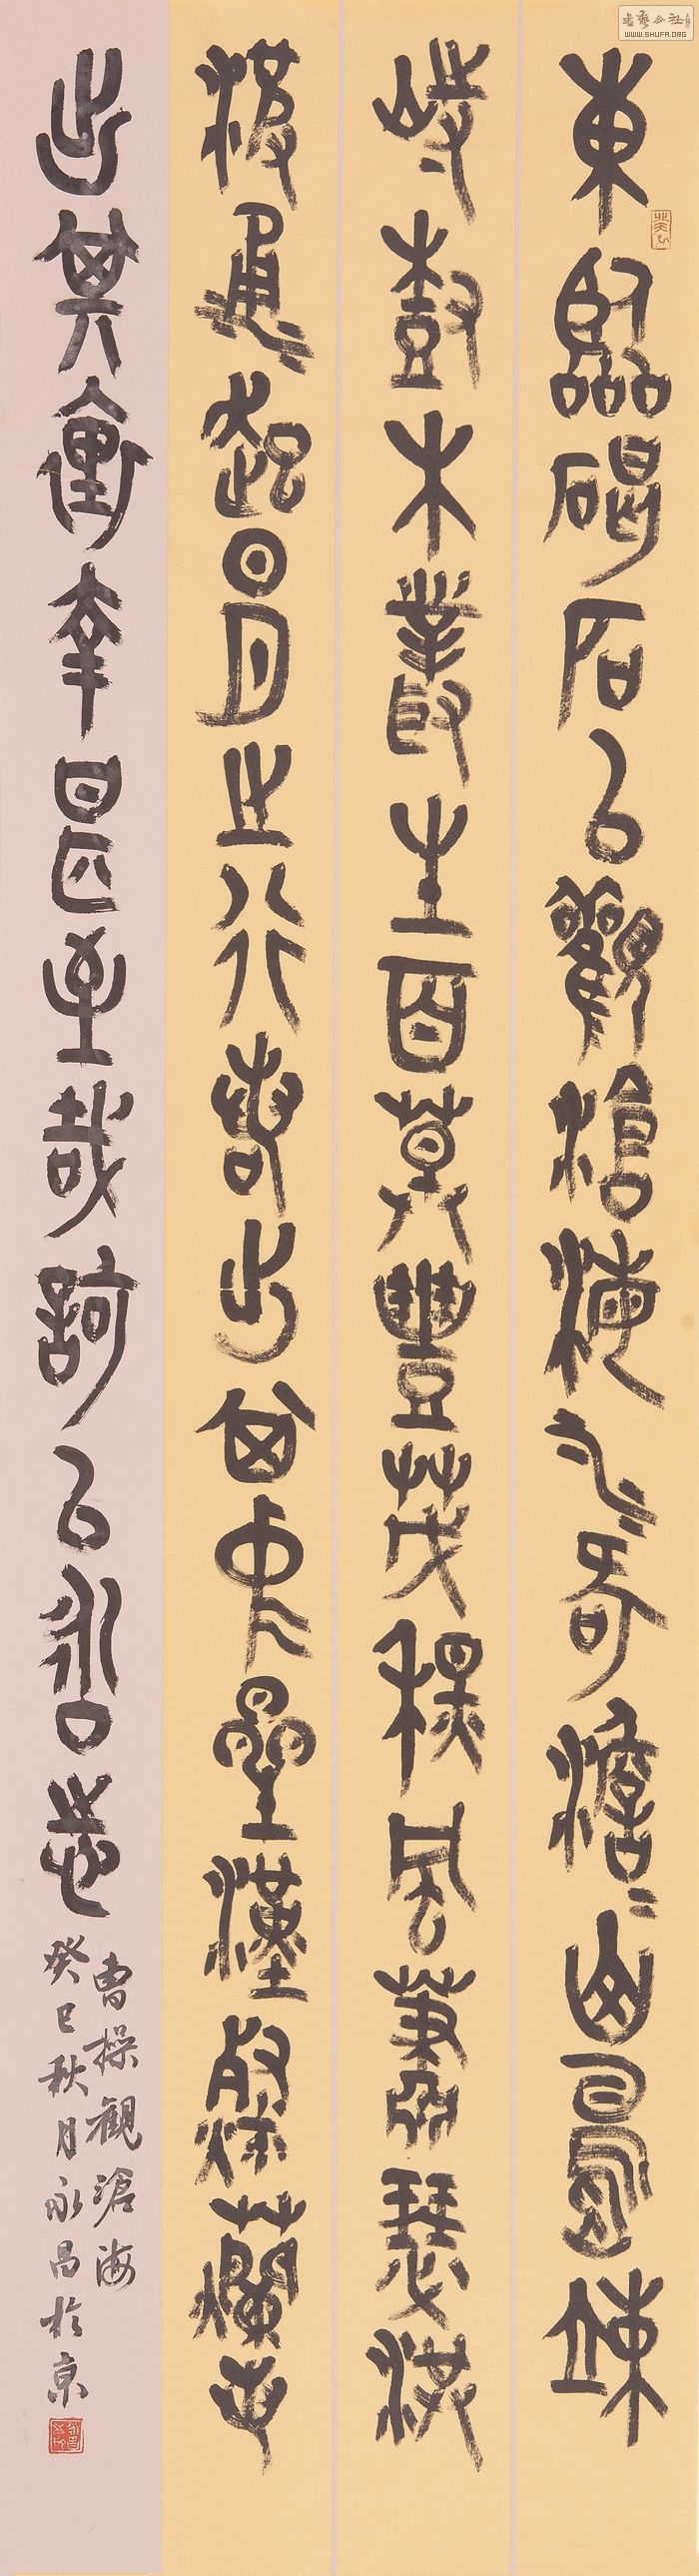 東臨碣石以觀滄海水何澹澹山島竦
峙樹木叢生百草豐茂秋風蕭瑟洪
波涌起日月之行若出其中星漢燦爛若
出其裏幸甚至哉歌以詠志
曹操觀滄海
癸巳秋月永昌於京
書法公社
WWW.SHUFA.ORG